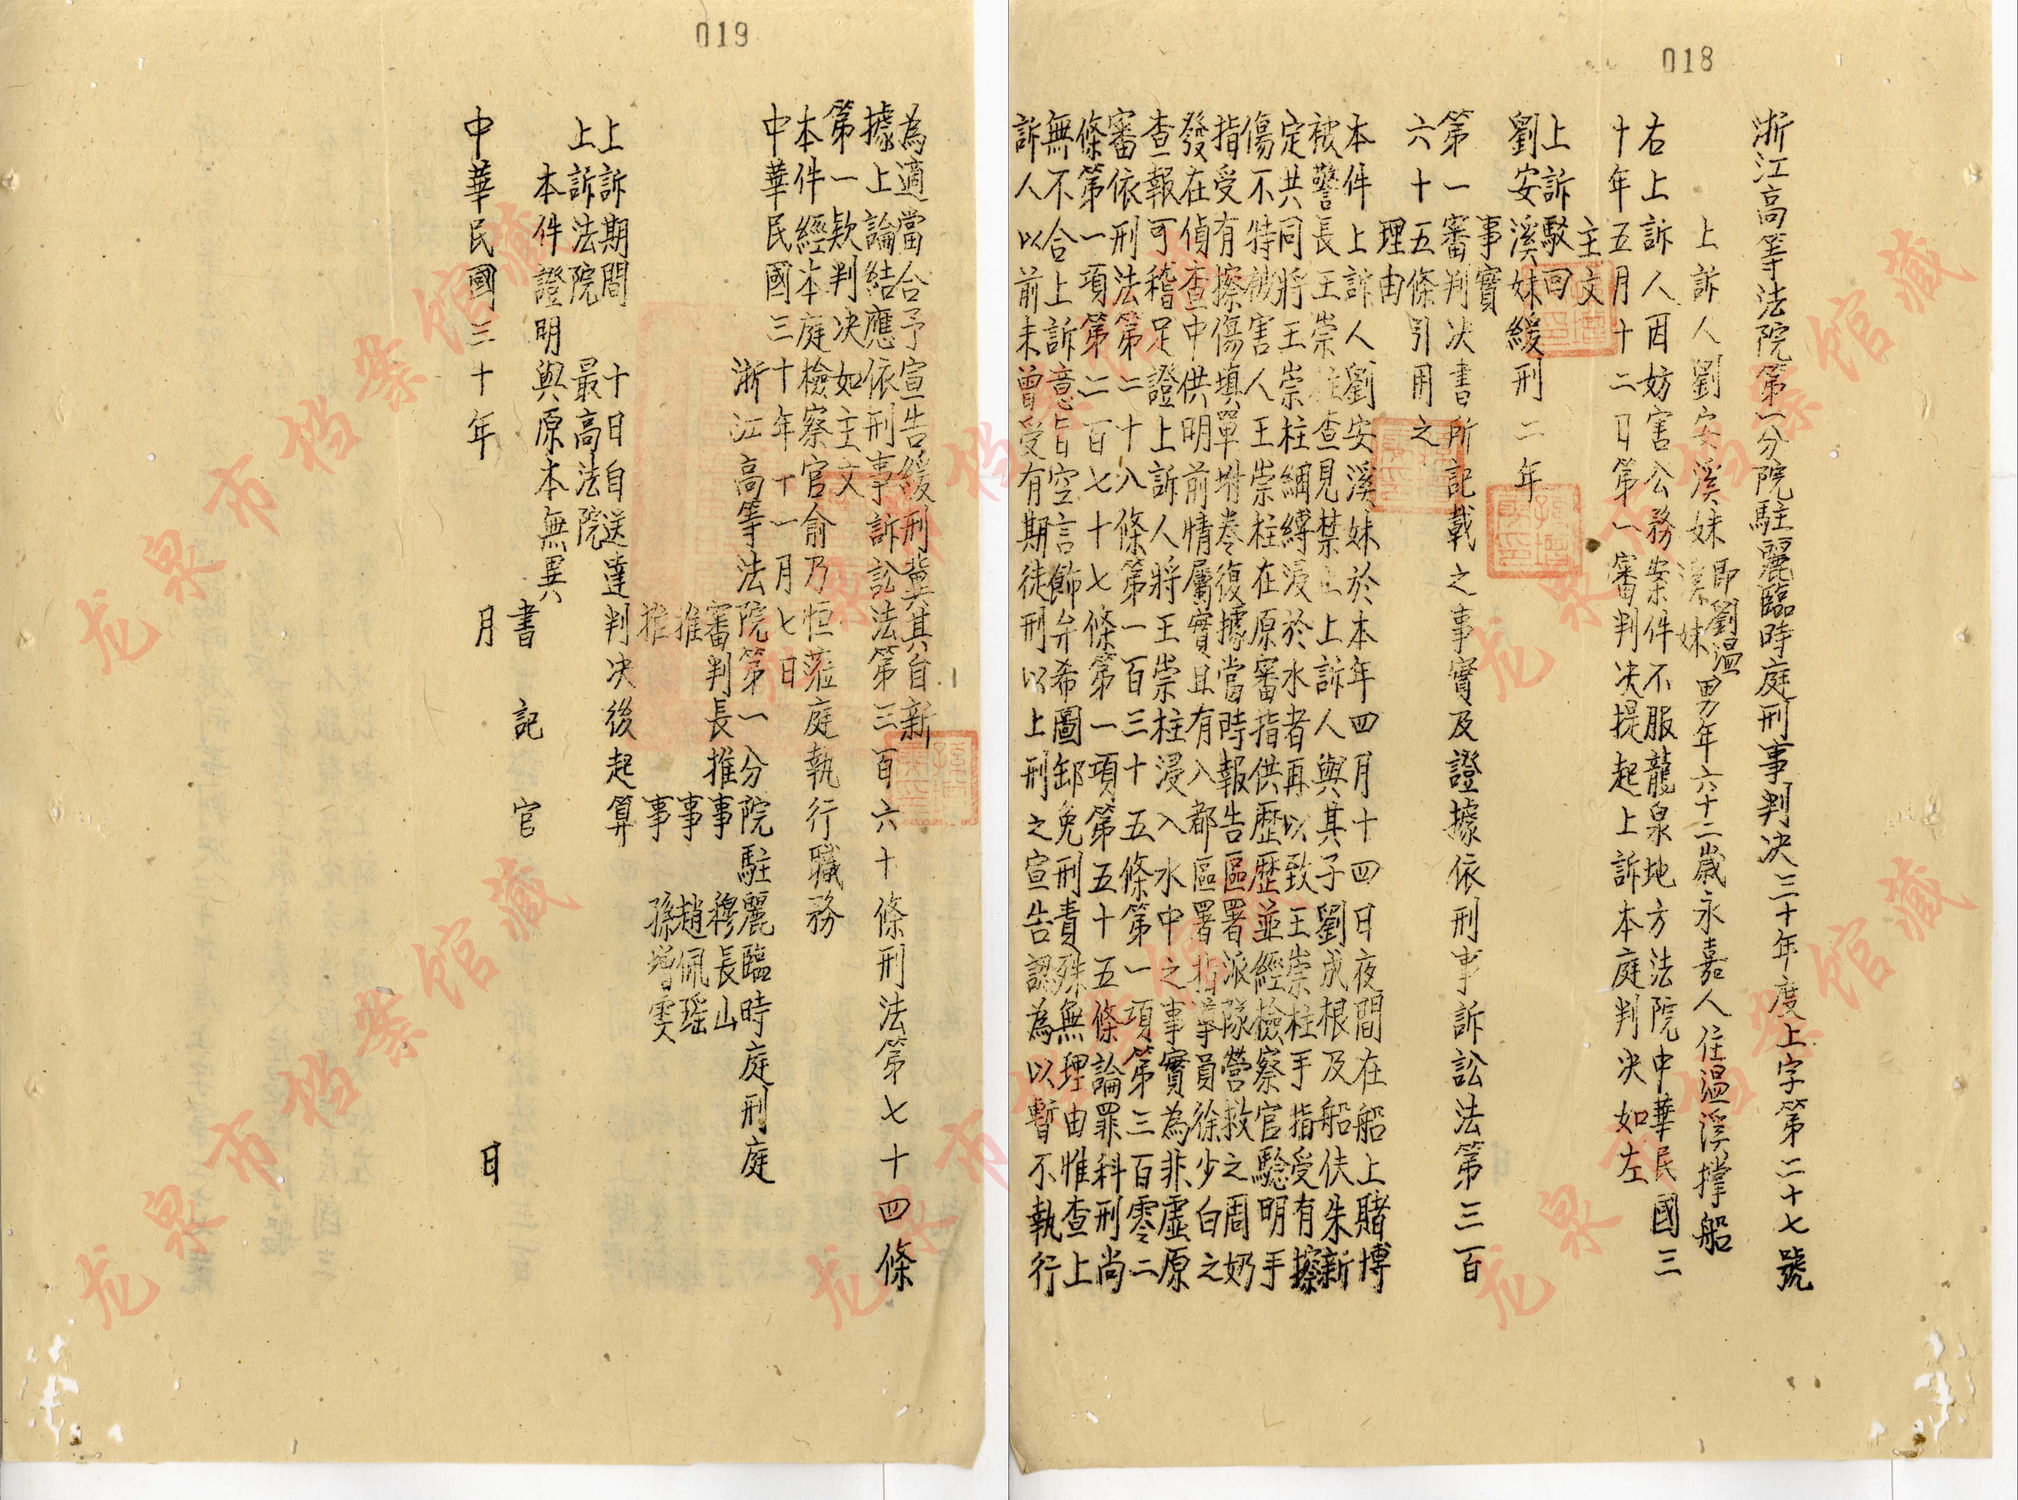 018
浙江高等法院第一分院駐麗臨時庭刑事判決三十年度上字第二十七號
上訴人劉安溪妹即劉溫溪妹男年六十二歲永嘉人住溫溪撐船
右上訴人因妨害公務案件不服龍泉地方法院中華民國三
十年五月十二日第一審判決提起上訴本庭判決如左
主文
上訴駁回
劉安溪妹緩刑二年
事實
第一審判決書所記載之事實及證據依刑事訴訟法第三百
六十五條引用之
理由
本件上訴人劉安溪妹於本年四月十四日夜間在船上賭博
被警長王崇柱查見禁止上訴人與其子劉成根及船伕朱新
定共同將王崇柱綑縛浸於水者再以致王崇柱手指受有擦
傷不特被害人王崇柱在原審指供歷歷並經檢察官驗明手
指受有擦傷填單坿卷復據當時報告區署派隊營救之周奶
發在偵查中供明前情屬實且有八都區署指導員徐少白之
查報可稽足證上訴人將王崇柱浸入水中之事實為非虛原
審依刑法第二十八條第一百三十五條第一項第三百零二
條第一項第二百七十七條第一項第五十五條論罪科刑尚
無不合上訴意旨空言飾弁希圖卸免刑責殊無理由惟查上
訴人以前未曾受有期徒刑以上刑之宣告認為以暫不執行
019
為適當合予宣告緩刑冀其自新
據上論結應依刑事訴訟法第三百六十條刑法第七十四條
第一欵判決如主文
本件經本庭檢察官俞乃恒蒞庭執行職務
中華民國三十年十一月七日
浙江高等法院第一分院駐麗臨時庭刑庭
審判長推事 穆長山
推事 趙佩瑶
推事 孫增雯
上訴期間 十日自送達判決後起算
上訴法院 最高法院
本件證明與原本無異
書記官
中華民國三十年 月 日
龙泉市档案馆藏
龙泉市档案馆藏
龙泉市档案馆藏
龙泉市档案馆藏
龙泉市档案馆藏
龙泉市档案馆藏